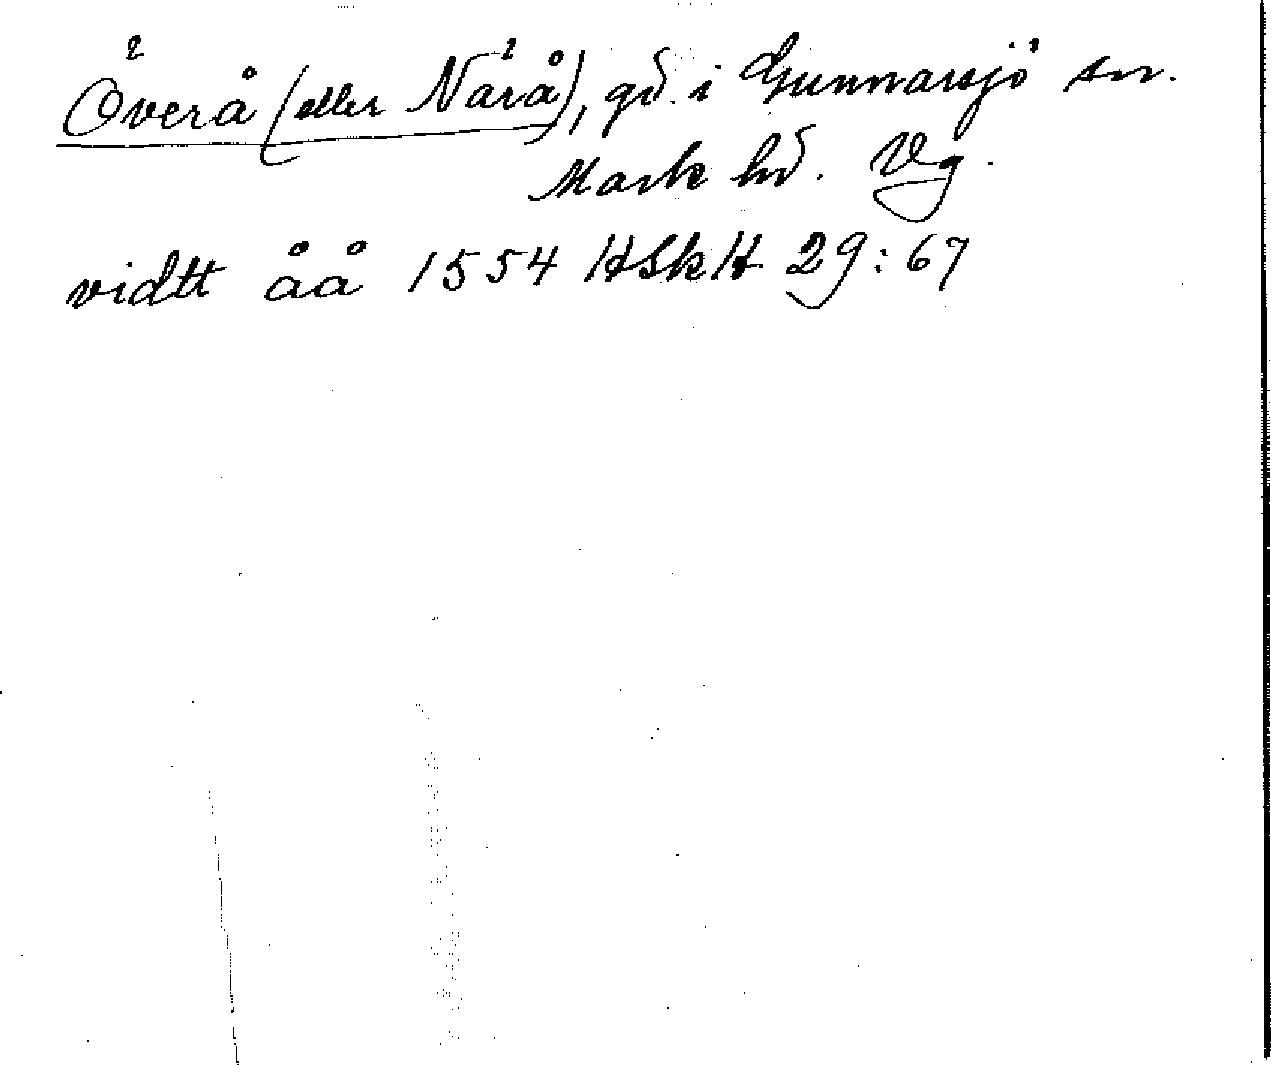 Överå (eller Närå), gd. i Gunnarsjö sn.
Mark hd. Vg.
vidtt åå 1554 HSkH 29:67